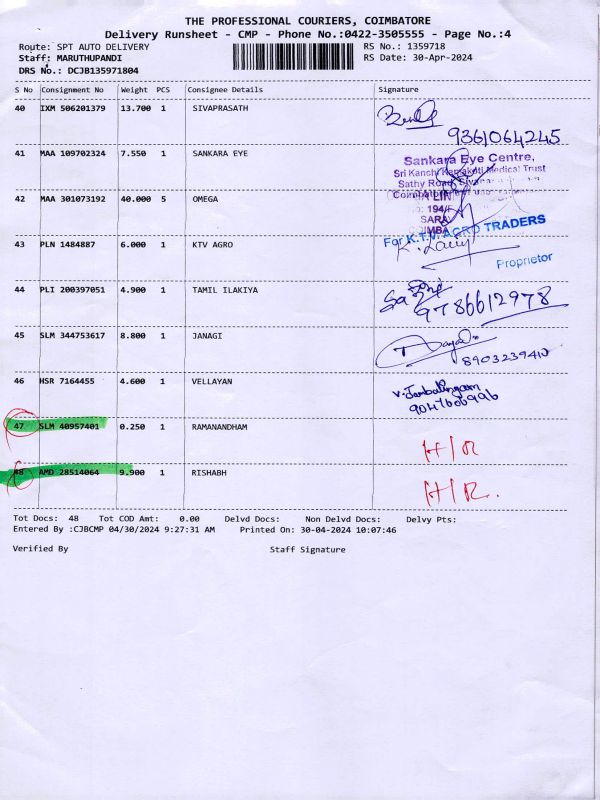 THE PROFESSIONAL COURIERS, COIMBATORE
Delivery Runsheet - CMP - Phone No.:0422-3505555 - Page No.:4
Route: SPT AUTO DELIVERY
RS No.: 1359718
Staff: MARUTHUPANDI
RS Date: 30-Apr-2024
DRS No.: DCJB135971804
S No Consignment No Weight PCS Consignee Details Signature
40 IXM 506201379 13.700 1 SIVAPRASATH
9361064245
41 MAA 109702324 7.550 1 SANKARA EYE
Sankara Eye Centre,
Sri Kanchi Kamakoti Medical Trust
Sathy Road,
42 MAA 301073192 40.000 5 OMEGA
194/
SARA
43 PLN 1484887 6.000 1 KTV AGRO
For K.T.V. AGRO TRADERS
Proprietor
44 PLI 200397051 4.900 1 TAMIL ILAKIYA
9786612978
45 SLM 344753617 8.800 1 JANAGI
8903239410
46 HSR 7164455 4.600 1 VELLAYAN
47 SLM 40957401 0.250 1 RAMANANDHAM
H/R
48 AMD 28514064 9.900 1 RISHABH
H/R.
Tot Docs: 48 Tot COD Amt: 0.00 Delvd Docs: Non Delvd Docs: Delvy Pts:
Entered By :CJBCMP 04/30/2024 9:27:31 AM Printed On: 30-04-2024 10:07:46
Verified By Staff Signature